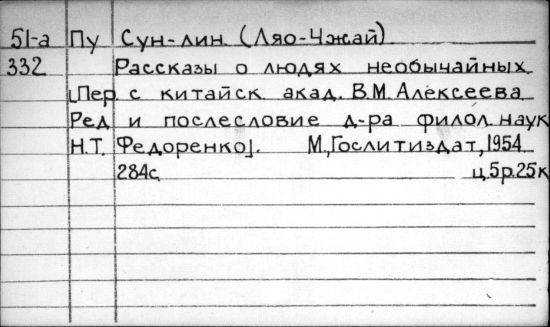 51-а Пу Сун-лин. (Ляо-Чжай).
332 Рассказы о людях необычайных.
[Пер. с китайск. акад. В.М. Алексеева
Ред. и послесловие д-ра филол. наук
Н.Т. Федоренко]. М., Гослитиздат, 1954
284с. ц. 5р. 25к